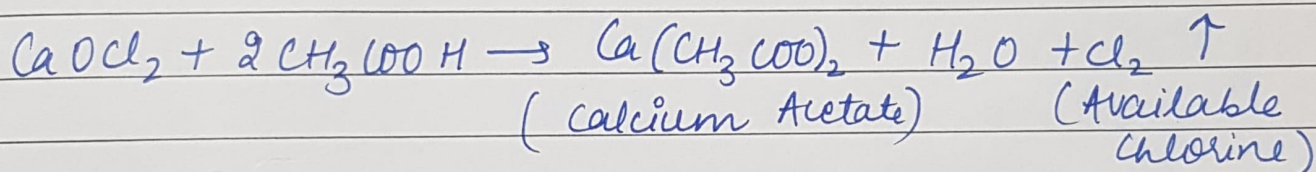 CaOCl₂ + 2CH₃COOH → Ca(CH₃COO)₂ + H₂O + Cl₂ ↑
(Calcium Acetate) (Available
Chlorine)